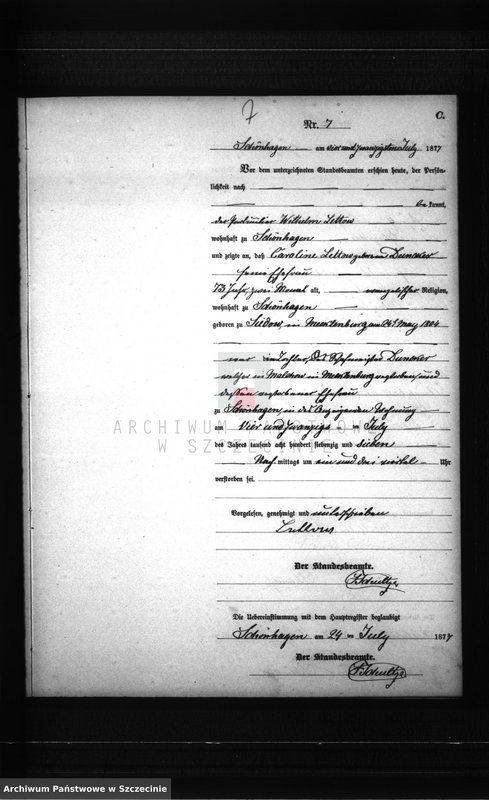 7
C.
Nr. 7
Schönhagen am vier und zwanzigsten July 1877
Vor dem unterzeichneten Standesbeamten erschien heute, der Persön-
lichkeit nach
be kannt,
der Wilhelm Lettow
wohnhaft zu Schönhagen
und zeigte an, daß Caroline Lettow geborene Duncker
seine Ehefrau
73 Jahr, zwei Monat alt, evangelischer Religion,
wohnhaft zu Schönhagen
geboren zu in Mecklenburg am 24t May 1804
war Tochter, des Duncker
welcher in Malchow in Mecklenburg verstorben, und
dessen verstorbener Ehefrau
zu Schönhagen, in des Anzeigenden Wohnung
am vier und zwanzigs ten July
des Jahres tausend acht hundert siebenzig und sieben
Nach mittags um ein und drei viertel Uhr
verstorben sei.
Vorgelesen, genehmigt und unterschrieben
Lettow
Der Standesbeamte.
Schultze
Die Uebereinstimmung mit dem Hauptregister beglaubigt
Schönhagen am 24 ten July 1877
Der Standesbeamte.
Schultze
ARCHIWUM PAŃSTWOWE
W SZCZECINIE
Archiwum Państwowe w Szczecinie